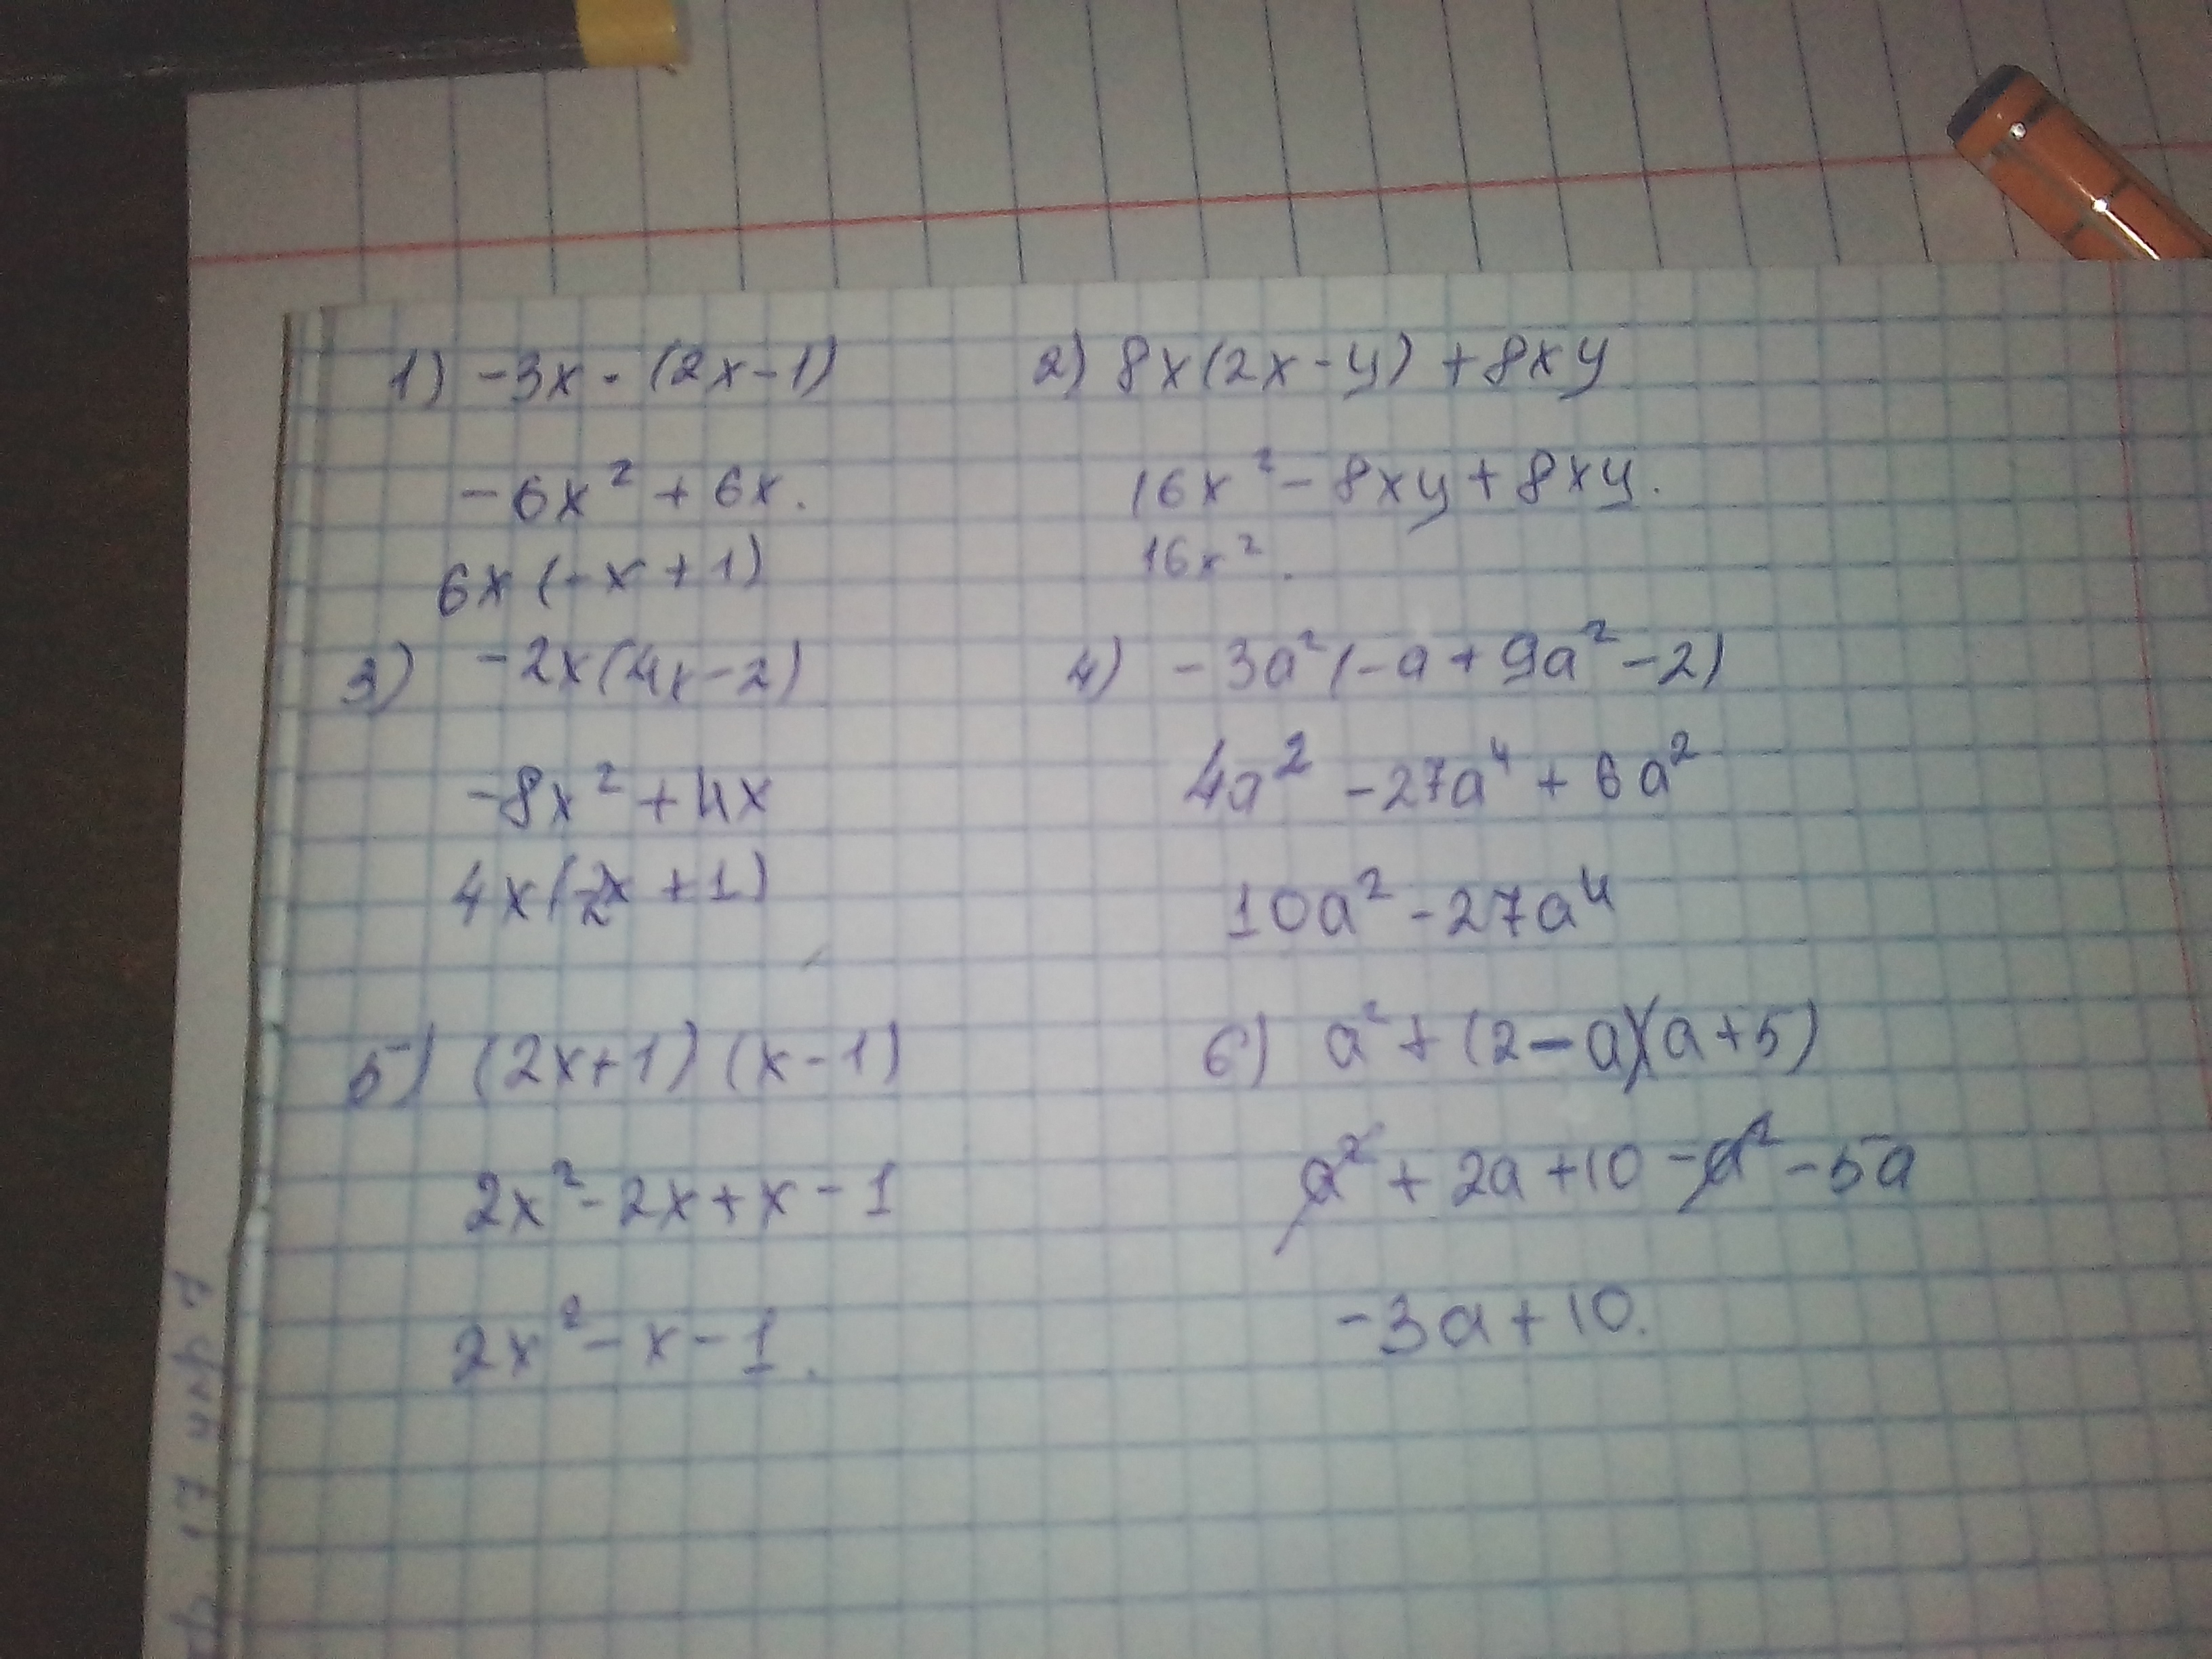 1) -3x · (2x-1)
-6x² + 6x.
6x (-x + 1)
2) 8x(2x-y) + 8xy
16x² - 8xy + 8xy.
16x².
3) -2x(4x-2)
-8x² + 4x
4x(-2x + 1)
4) -3a² (-a + 9a² - 2)
4a² - 27a⁴ + 6a²
10a² - 27a⁴
5) (2x+1) (x-1)
2x² - 2x + x - 1
2x² - x - 1.
6) a² + (2-a)(a+5)
a² + 2a + 10 - a² - 5a
-3a + 10.